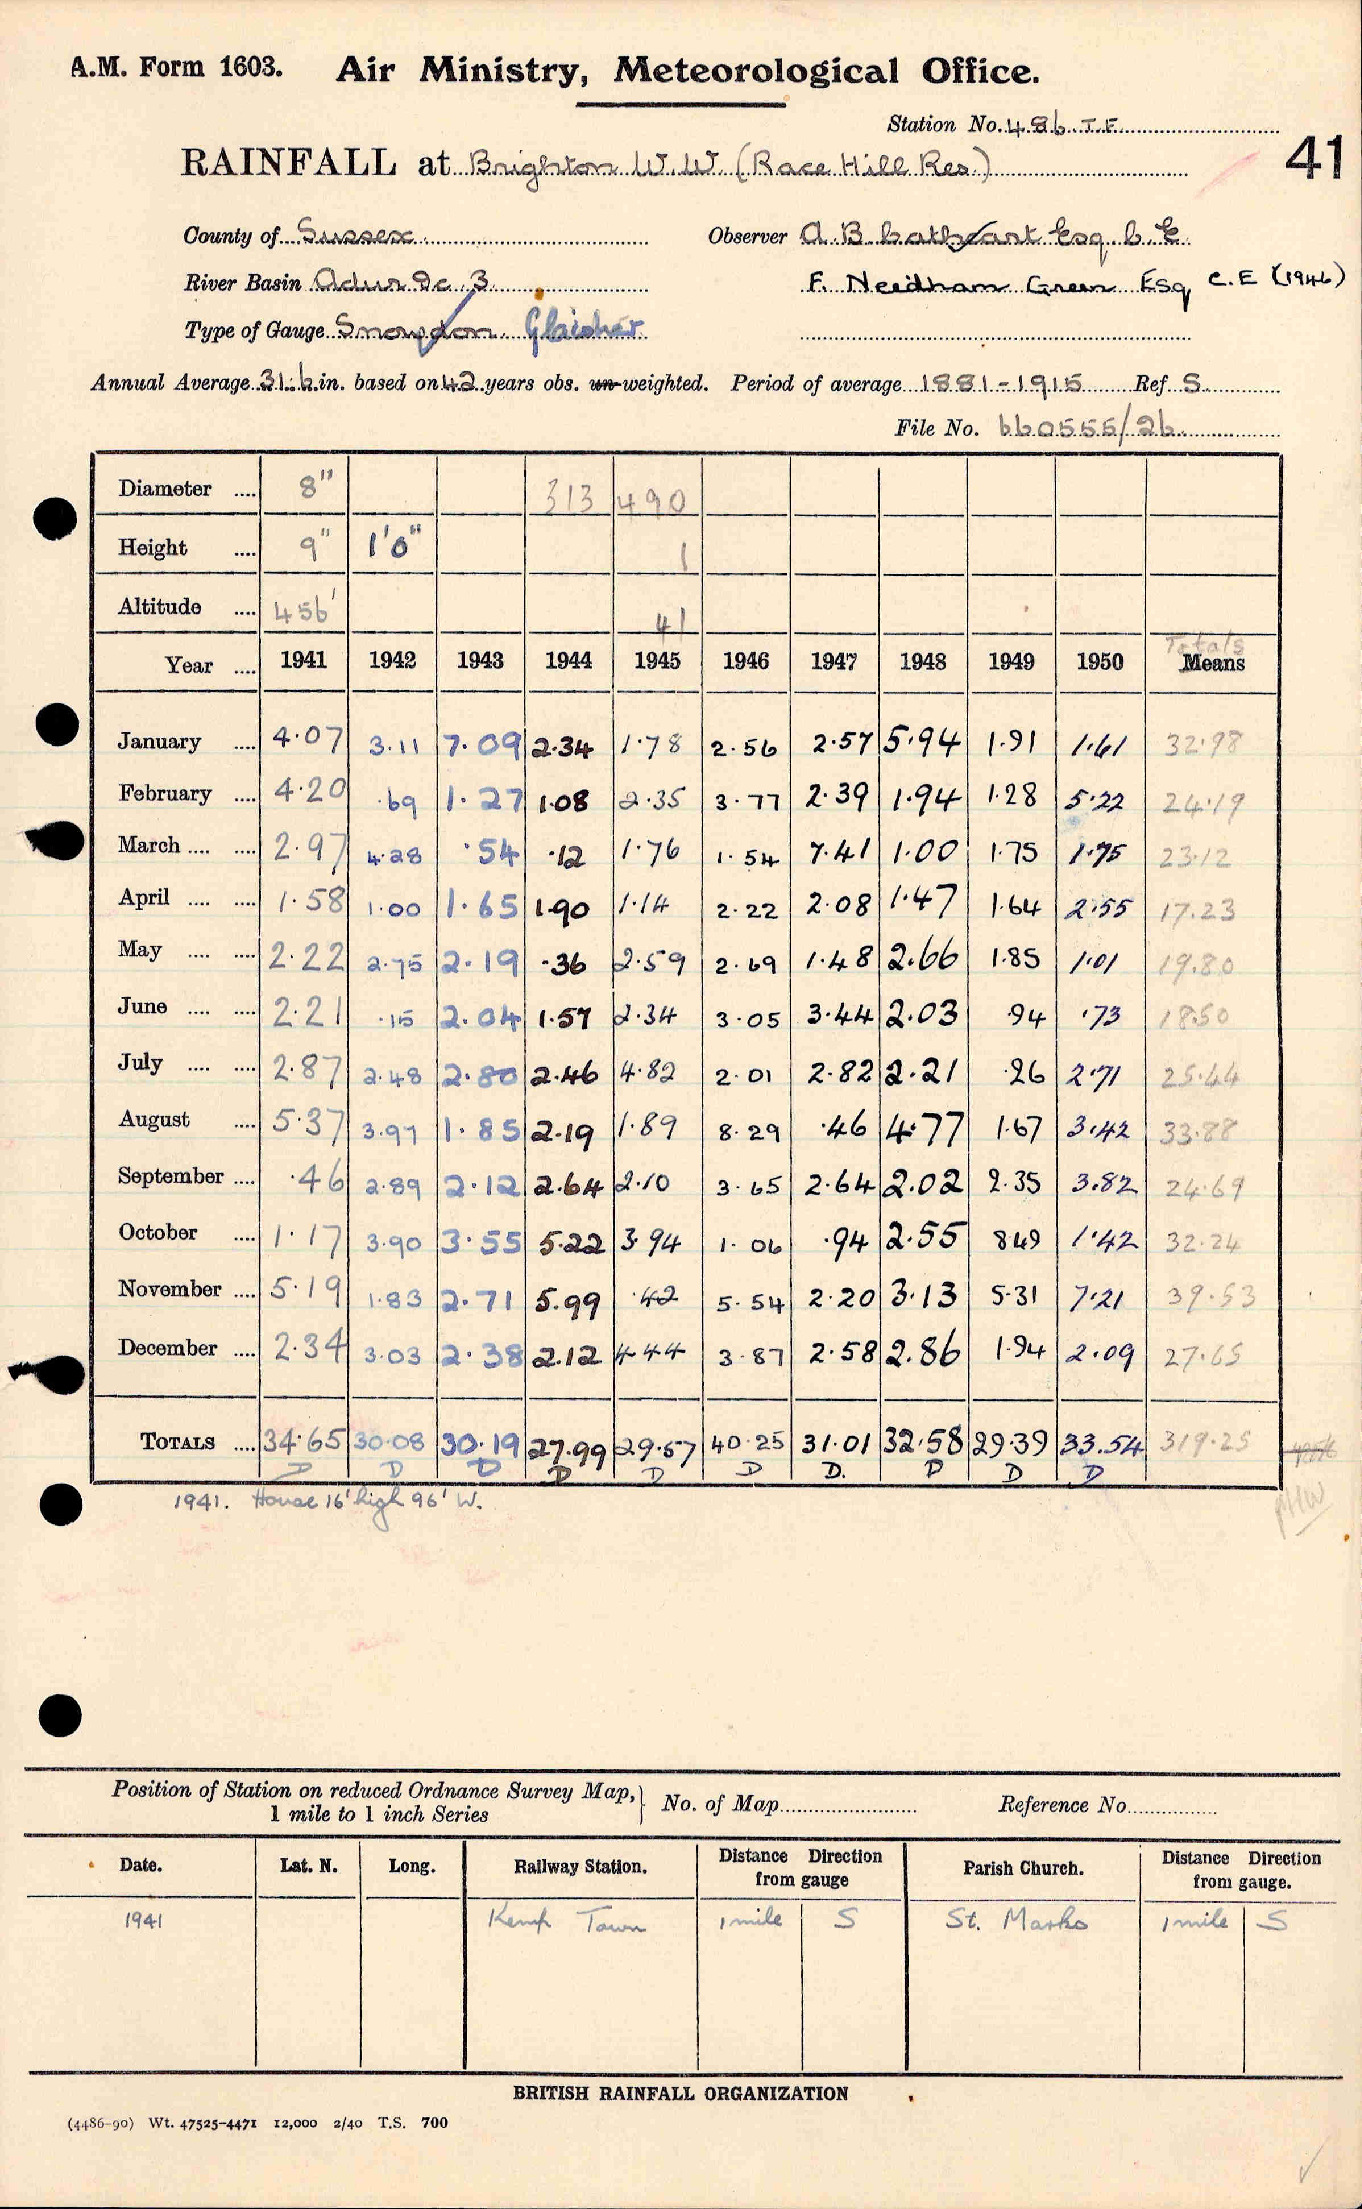 A.M. Form 1603. Air Ministry, Meteorological Office.
Station No. 486 T.F.
41
RAINFALL at Brighton W.W. (Race Hill Res)
County of Sussex Observer A B Cathcart Esq. C.E.
River Basin Adur &c 3 F. Needham Green Esq C.E (1946)
Type of Gauge Snowdon Glaisher
Annual Average 31.6 in. based on 42 years obs. un-weighted. Period of average 1881-1915 Ref S.
File No. 660555/26
Diameter .... 8" 313 490
Height .... 9" 1'0" 1
Altitude .... 456' 41
Totals
Year .... 1941 1942 1943 1944 1945 1946 1947 1948 1949 1950 Means
January .... 4.07 3.11 7.09 2.34 1.78 2.56 2.57 5.94 1.91 1.61 32.98
February .... 4.20 .69 1.27 1.08 2.35 3.77 2.39 1.94 1.28 5.22 24.19
March .... .... 2.97 4.28 .54 .12 1.76 1.54 7.41 1.00 1.75 1.75 23.12
April .... .... 1.58 1.00 1.65 1.90 1.14 2.22 2.08 1.47 1.64 2.55 17.23
May .... .... 2.22 2.75 2.19 .36 2.59 2.69 1.48 2.66 1.85 1.01 19.80
June .... .... 2.21 .15 2.04 1.57 2.34 3.05 3.44 2.03 .94 .73 18.50
July .... .... 2.87 2.48 2.80 2.46 4.82 2.01 2.82 2.21 .26 2.71 25.44
August .... 5.37 3.97 1.85 2.19 1.89 8.29 .46 4.77 1.67 3.42 33.88
September .... .46 2.89 2.12 2.64 2.10 3.65 2.64 2.02 2.35 3.82 24.69
October .... 1.17 3.90 3.55 5.22 3.94 1.06 .94 2.55 8.49 1.42 32.24
November .... 5.19 1.83 2.71 5.99 .42 5.54 2.20 3.13 5.31 7.21 39.53
December .... 2.34 3.03 2.38 2.12 4.44 3.87 2.58 2.86 1.94 2.09 27.65
TOTALS .... 34.65 30.08 30.19 27.99 29.57 40.25 31.01 32.58 29.39 33.54 319.25
D D D D D D D. D D D
1941. House 16' high 96' W.
Position of Station on reduced Ordnance Survey Map,
1 mile to 1 inch Series
No. of Map Reference No.
Date. Lat. N. Long. Railway Station. Distance Direction from gauge Parish Church. Distance Direction from gauge.
1941 Kemp Town 1 mile S St. Marks 1 mile S
BRITISH RAINFALL ORGANIZATION
(4486-90) Wt. 47525-4471 12,000 2/40 T.S. 700